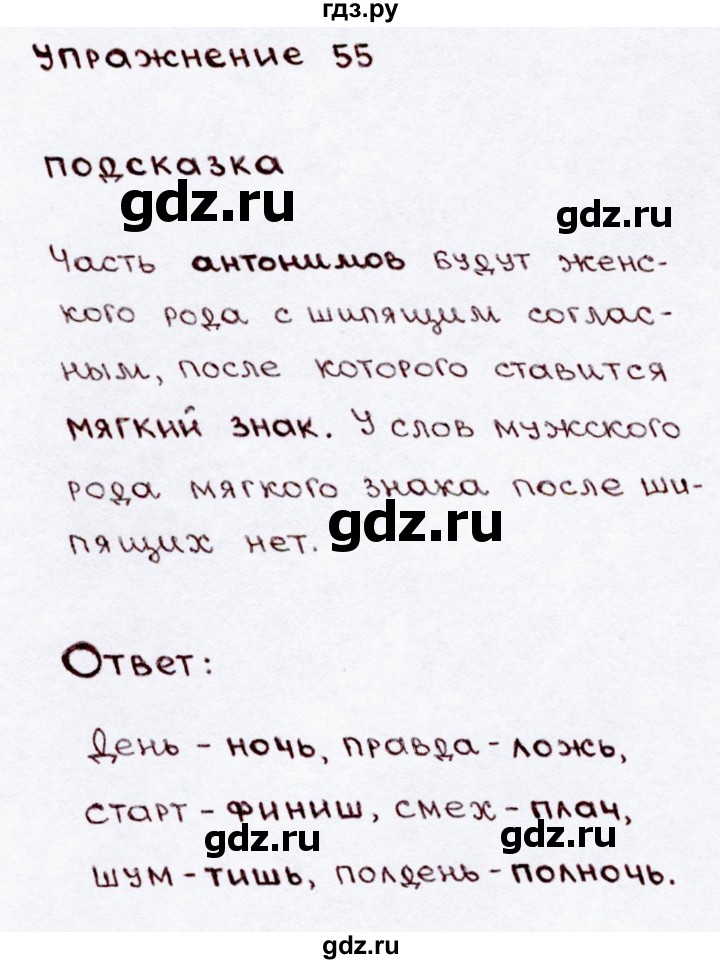 гдз.ру
Упражнение 55
подсказка
gdz.ru
gdz.ru
Часть антонимов будут женс-
кого рода с шипящим соглас-
ным, после которого ставится
мягкий знак. У слов мужского
рода мягкого знака после ши-
пящих нет.
gdz.ru
Ответ:
День - ночь, правда - ложь,
старт - финиш, смех - плач,
gdz.ru
gdz.ru
шум - тишь, полдень - полночь.
gdz.ru